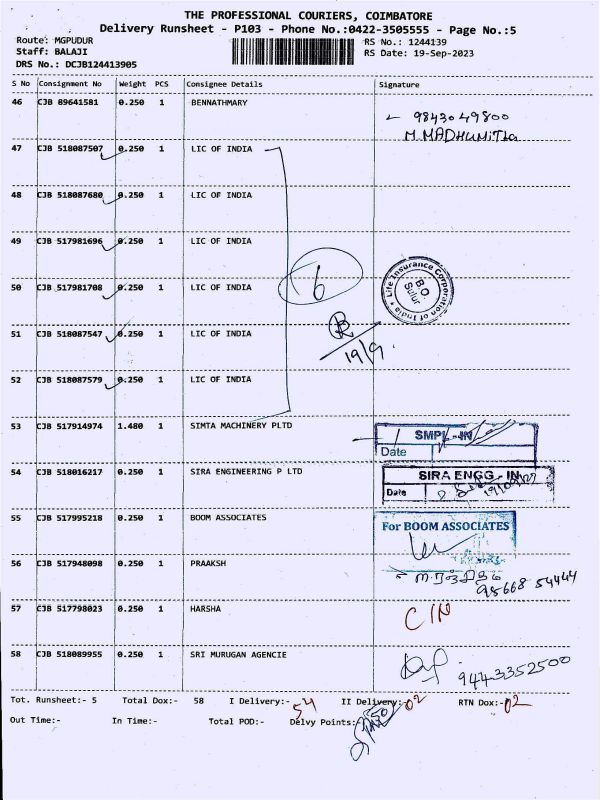 THE PROFESSIONAL COURIERS, COIMBATORE
Delivery Runsheet - P103 - Phone No.:0422-3505555 - Page No.:5
Route: MGPUDUR RS No.: 1244139
Staff: BALAJI RS Date: 19-Sep-2023
DRS No.: DCJB124413905
S No Consignment No Weight PCS Consignee Details Signature
46 CJB 89641581 0.250 1 BENNATHMARY 9843049800
M. MADHUMITha
47 CJB 518087507 0.250 1 LIC OF INDIA
48 CJB 518087680 0.250 1 LIC OF INDIA
49 CJB 517981696 0.250 1 LIC OF INDIA
6
Life Insurance Corporation of India
B.O
Sulur
50 CJB 517981708 0.250 1 LIC OF INDIA
51 CJB 518087547 0.250 1 LIC OF INDIA
19/9
52 CJB 518087579 0.250 1 LIC OF INDIA
53 CJB 517914974 1.480 1 SIMTA MACHINERY PLTD
SMPL-IN
Date
54 CJB 518016217 0.250 1 SIRA ENGINEERING P LTD
SIRA ENGG - IN
Date
55 CJB 517995218 0.250 1 BOOM ASSOCIATES
For BOOM ASSOCIATES
56 CJB 517948098 0.250 1 PRAAKSH
98668 54444
57 CJB 517798023 0.250 1 HARSHA
C/N
58 CJB 518089955 0.250 1 SRI MURUGAN AGENCIE
9443352500
Tot. Runsheet:- 5 Total Dox:- 58 I Delivery:- 54 II Delivery:- 02 RTN Dox:- 02
Out Time:- In Time:- Total POD:- Delvy Points:- 50